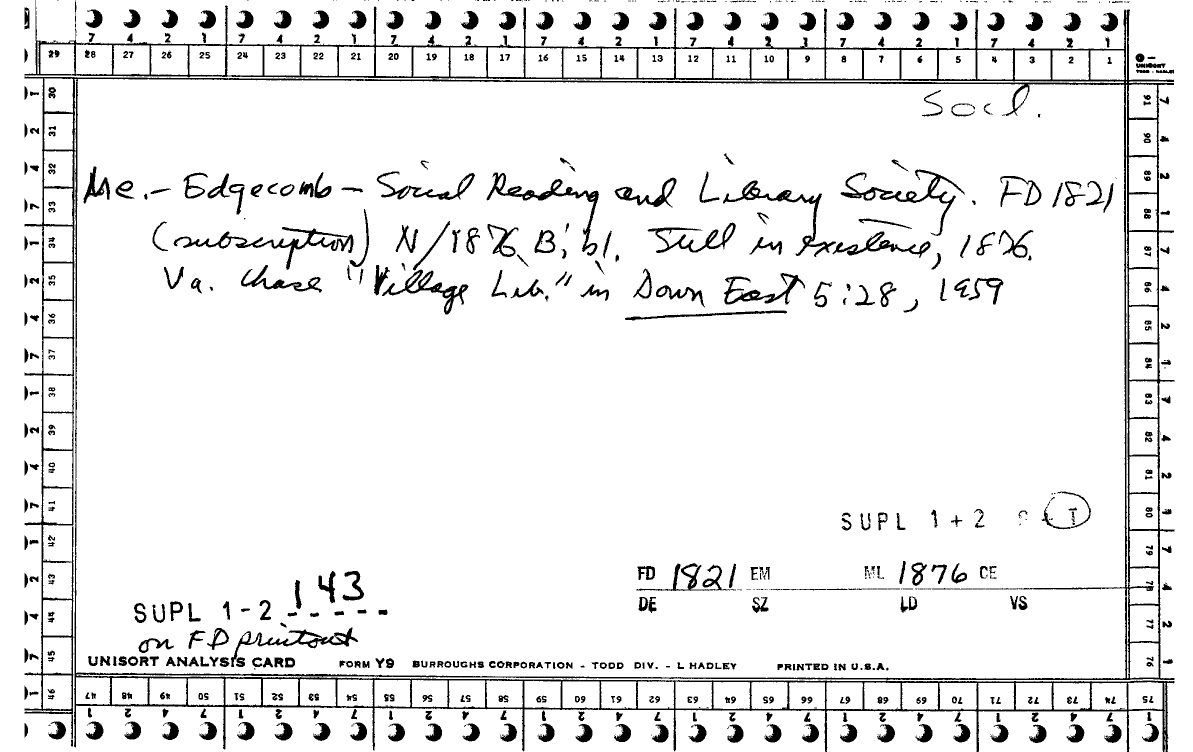 7 4 2 1 7 4 2 1 7 4 2 1 7 4 2 1 7 4 2 1 7 4 2 1 7 4 2 1
29 28 27 26 25 24 23 22 21 20 19 18 17 16 15 14 13 12 11 10 9 8 7 6 5 4 3 2 1
UNISORT
TODD - HADLEY
Socl.
Me. - Edgecomb - Social Reading and Library Society. FD 1821
(subscription) N/1876. B; bl. Still in existence, 1876.
Va. Chase "Village Lib." in Down East 5:28, 1959
SUPL 1 + 2 S + T
FD 1821 EM ML 1876 CE
DE SZ LD VS
SUPL 1-2 143
on FD printout
UNISORT ANALYSIS CARD FORM Y9 BURROUGHS CORPORATION - TODD DIV. - L HADLEY PRINTED IN U.S.A.
30 31 32 33 34 35 36 37 38 39 40 41 42 43 44 45 46
1 2 4 7 1 2 4 7 1 2 4 7 1 2 4 7 1
91 90 89 88 87 86 85 84 83 82 81 80 79 78 77 76
7 4 2 1 7 4 2 1 7 4 2 1 7 4 2 1
47 48 49 50 51 52 53 54 55 56 57 58 59 60 61 62 63 64 65 66 67 68 69 70 71 72 73 74 75
1 2 4 7 1 2 4 7 1 2 4 7 1 2 4 7 1 2 4 7 1 2 4 7 1 2 4 7 1